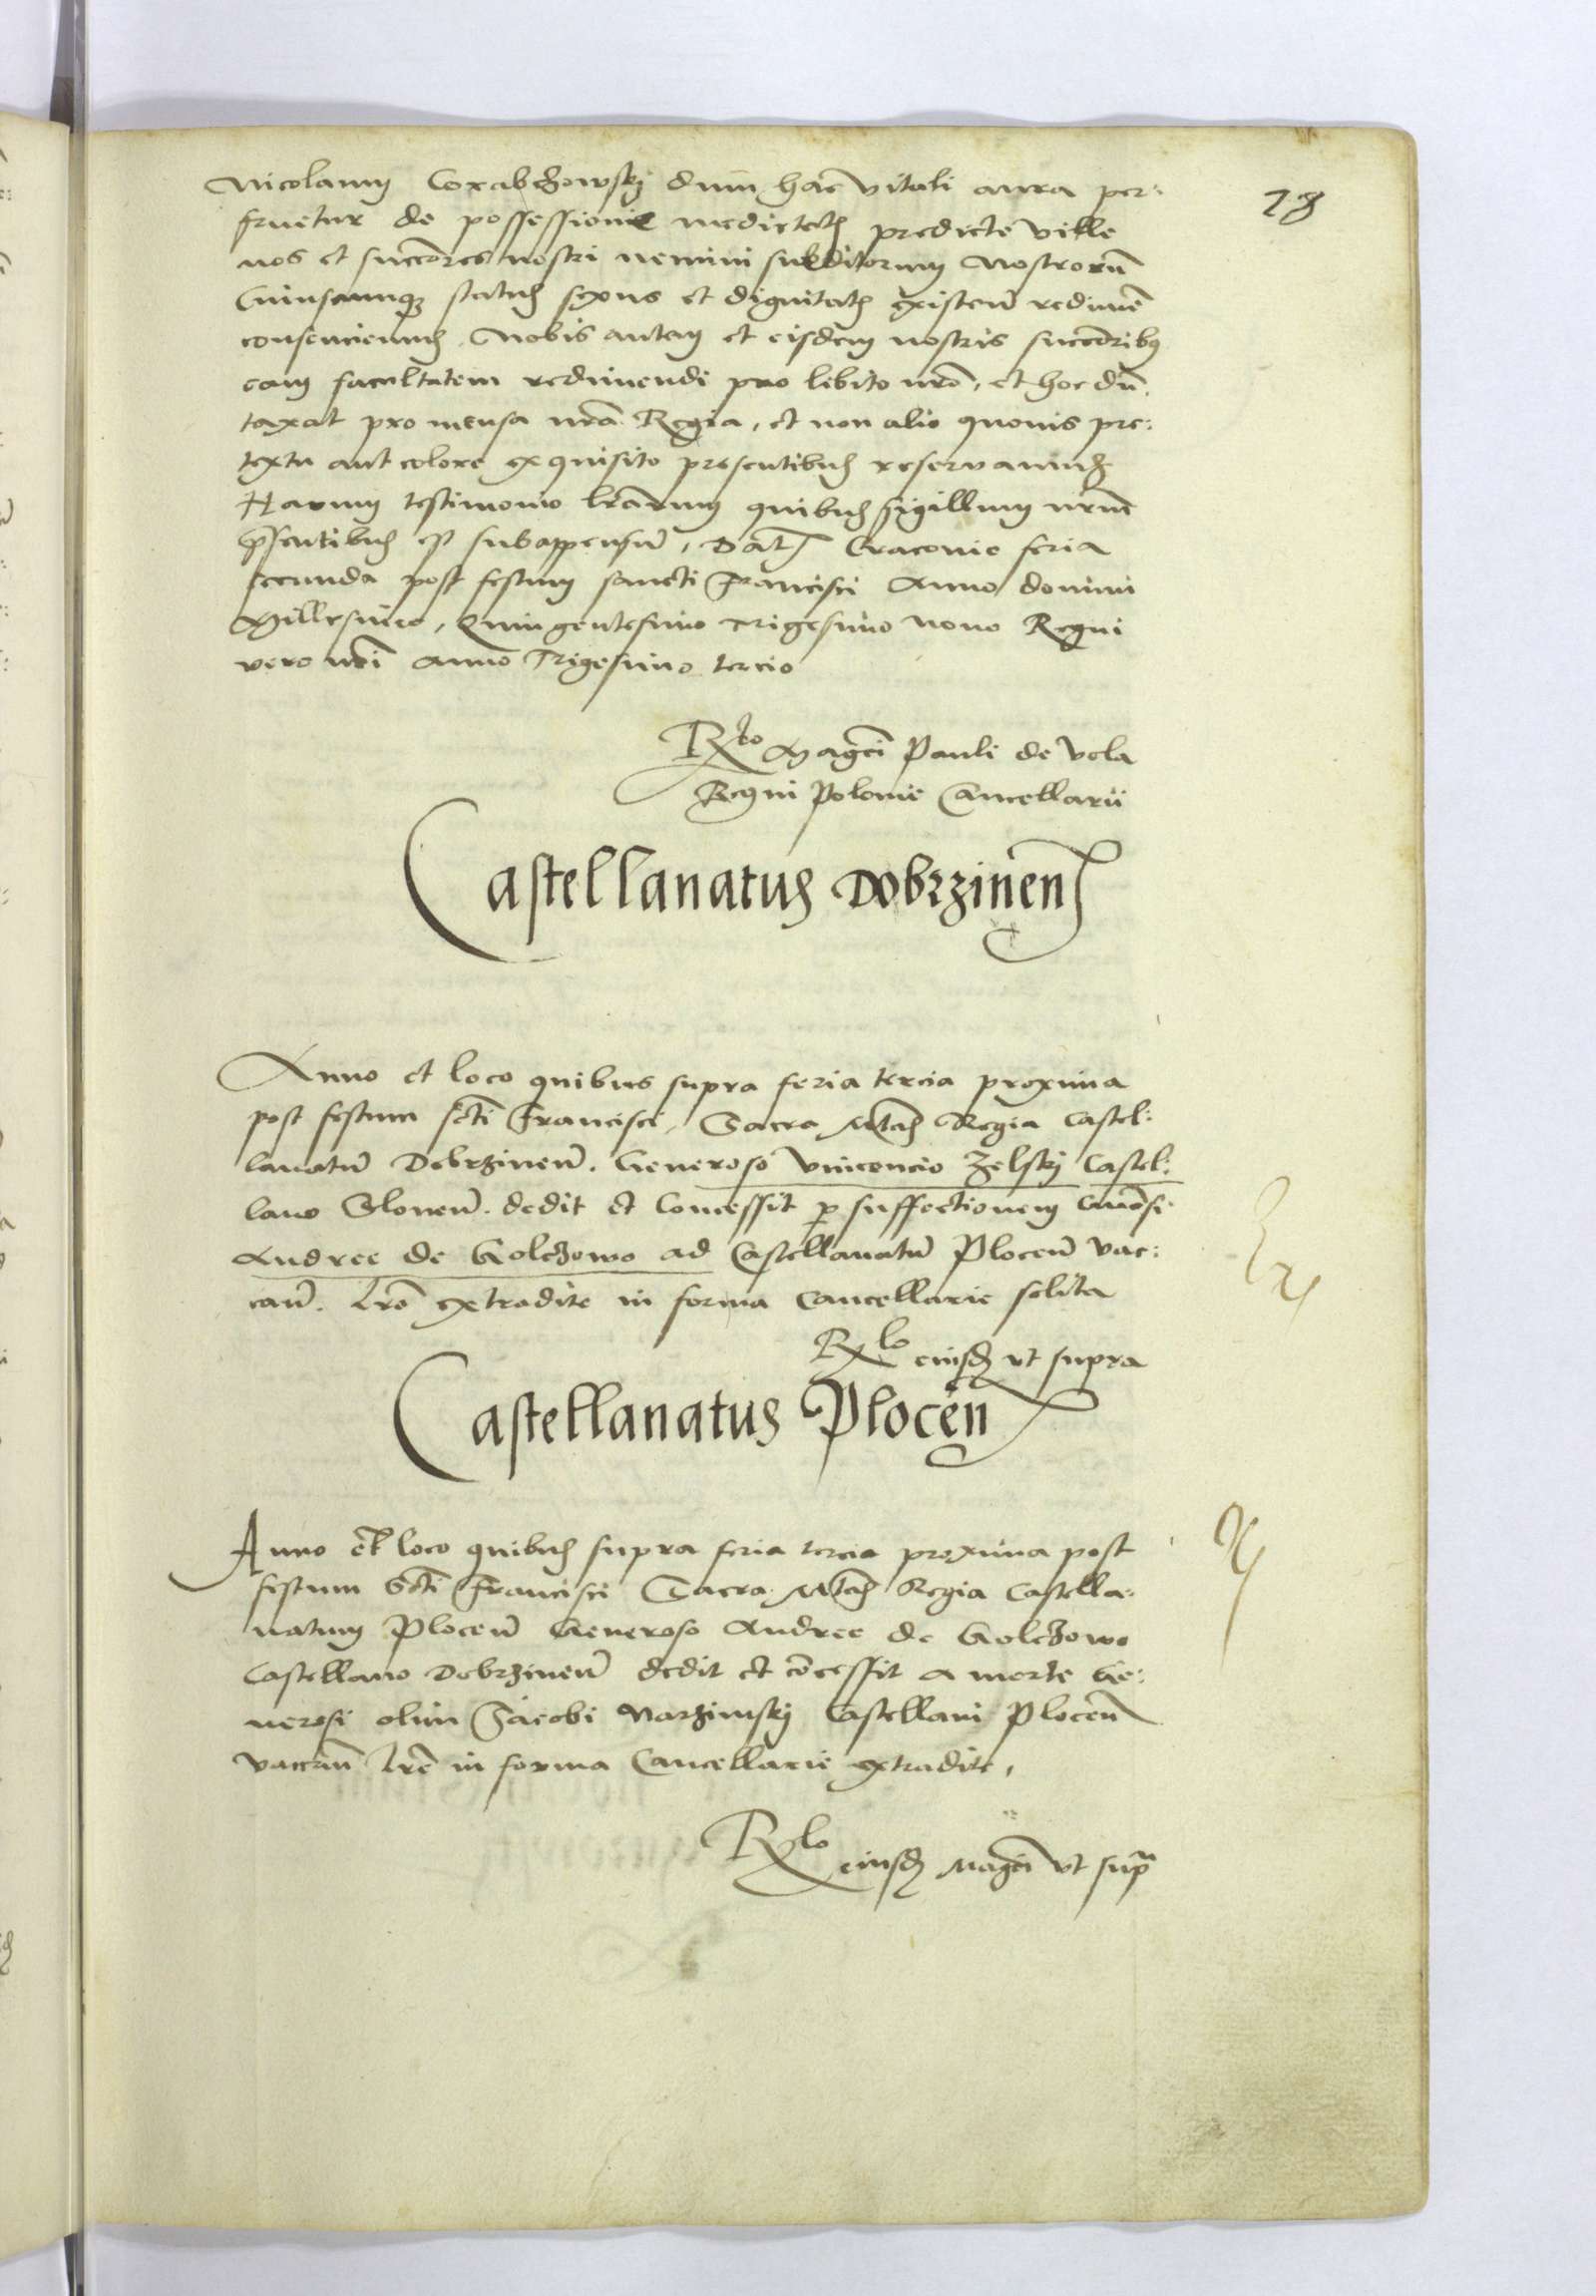 Nicolaum Corabczowskj dum hac vitali aura per:
fruetur de possessione medietatis predicte ville
nos et succōres nostri nemini subditorum Nostrorū
Cuiuscumq; status sexus et dignitatis existeñ redimē
consenciemus. Nobis autem et eisdem nostris succōribus
eam facultatem redimendi pro libito nrō, et hoc dū:
taxat pro mensa nrā Regia, et non alio quouis pre:
textu aut colore exquisito presentibus reservamus
Harum testimonio lrārum quibus sigillum nrūm
pñsentibus est subappensū, Dat Cracovie feria
secunda post festum sancti Francisci Anno domini
Millesimo, Quingentesimo Trigesimo nono Regni
vero nrī anno Trigesimo tercio
Rlo Magci Pauli de Vola
Regni Polonie Cancellarii
Castellanatus Dobrzinen
Anno et loco quibus supra feria tercia proxima
post festum scti Francisci, Sacra Mtas Regia Castel:
lanatū Dobrzineñ. Generoso Vincencio Zelskj Castel:
lano Sloneñ. dedit et Concessit p suffectionem Gnōsi
Andree de Golczowo ad Castellanatū Ploceñ vac:
cañ. Lrē extradite in forma Cancellarie solita
Rlo eiusd ut supra
Castellanatus Plocen
Anno et loco quibus supra feria tercia proxima post
festum Scti Francisci Sacra Mtas Regia Castella:
natum Ploceñ Generoso Andree de Golczowo
Castellano Dobrzineñ dedit et cōcessit a morte Ge:
nerosi olim Jacobi Narzimskj Castellani Ploceñ
vaccañ Lrē in forma Cancellarie extradite,
Rlo eiusd Magci ut supra